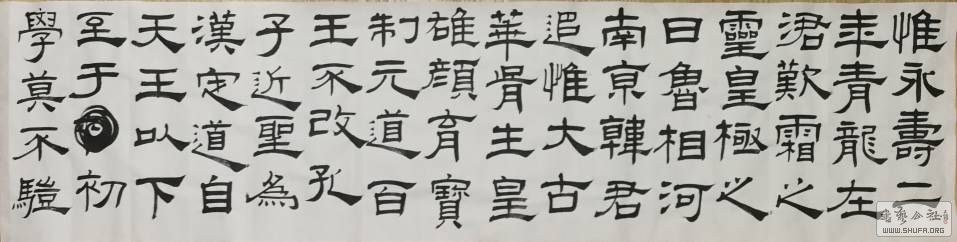 惟永壽二
年青龍在
涒歎霜之
靈皇極之
日魯相河
南京韓君
追惟大古
華胥生皇
雄顏育寶
制元道百
王不改孔
子近聖為
漢定道自
天王以下
至于初
學莫不
書藝公社
WWW.SHUFA.ORG